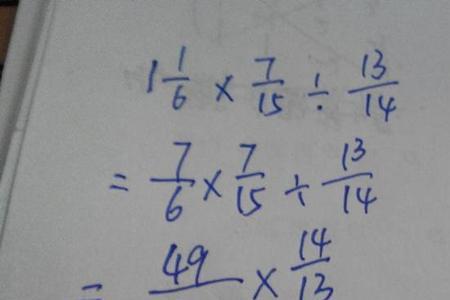 1 1/6 × 7/15 ÷ 13/14
= 7/6 × 7/15 ÷ 13/14
= 49/ × 14/13